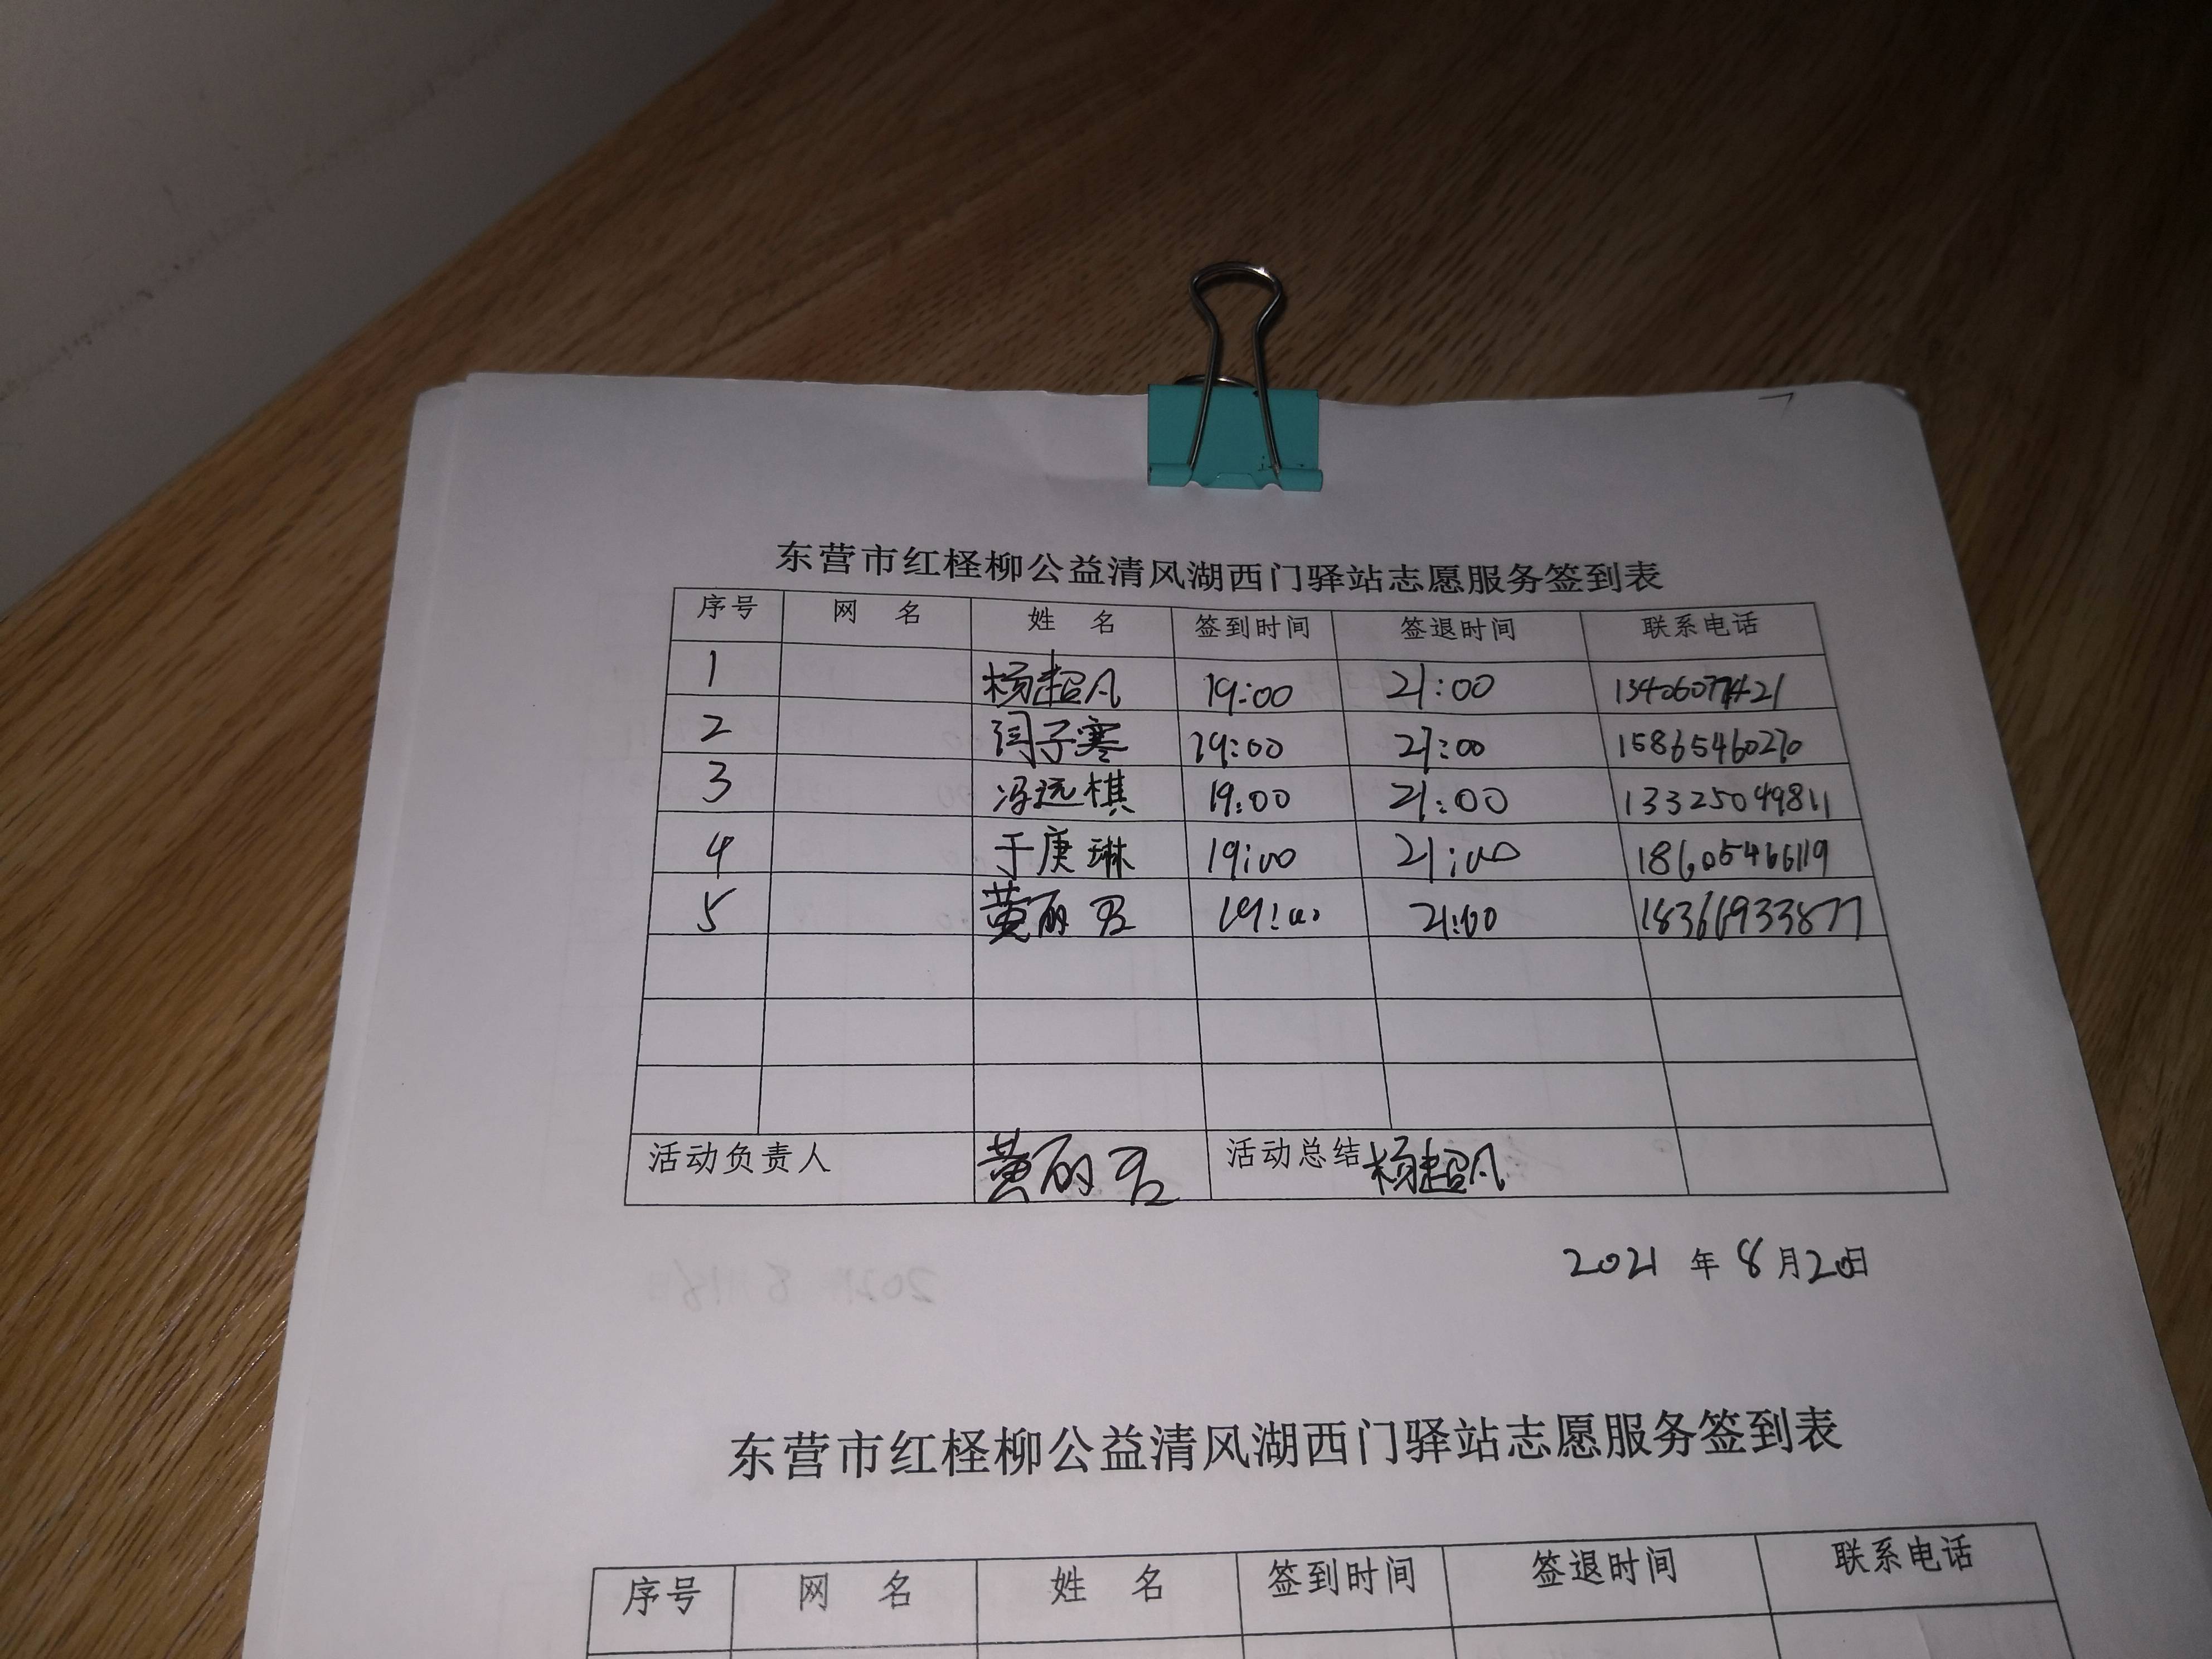 东营市红柽柳公益清风湖西门驿站志愿服务签到表
序号 网 名 姓 名 签到时间 签退时间 联系电话
1 杨超凡 19:00 21:00 13406077421
2 闫子寒 19:00 21:00 15865460270
3 冯远棋 19:00 21:00 13325049811
4 于庚琳 19:00 21:00 18605466119
5 黄丽君 19:00 21:00 18366933877
活动负责人 黄丽君 活动总结 杨超凡
2021 年 8 月 20 日
东营市红柽柳公益清风湖西门驿站志愿服务签到表
序号 网 名 姓 名 签到时间 签退时间 联系电话